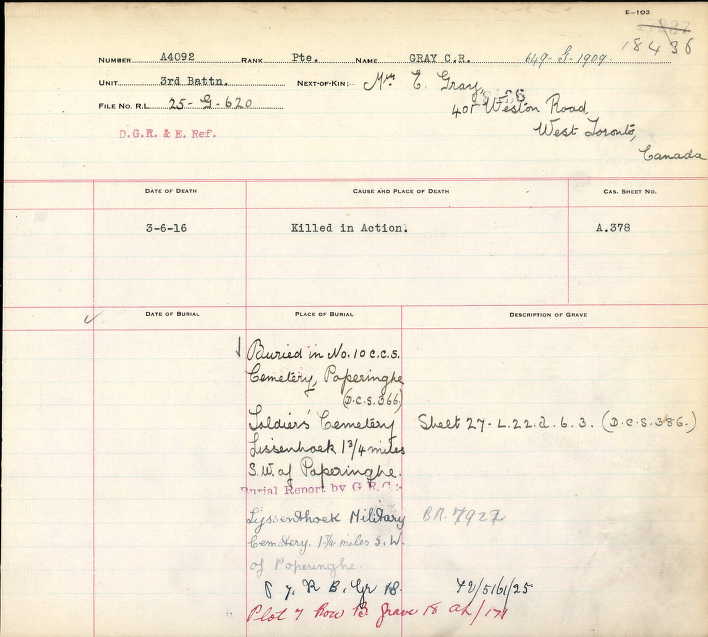 E-103
18436
NUMBER A4092 RANK Pte. NAME GRAY C.R. 649-G-1909.
UNIT 3rd Battn. NEXT-OF-KIN:- Mrs E. Gray,
FILE NO. R.L. 25-G-620
401 Weston Road,
D.G.R. & E. Ref.
West Toronto,
Canada
DATE OF DEATH CAUSE AND PLACE OF DEATH CAS. SHEET NO.
3-6-16 Killed in Action. A.378
DATE OF BURIAL PLACE OF BURIAL DESCRIPTION OF GRAVE
Buried in No. 10 C.C.S.
Cemetery, Poperinghe
(D.C.S. 366)
Soldiers' Cemetery Sheet 27- L.22.d. 6.3. (D.C.S. 386.)
Lissenhoek 1 3/4 miles
S.W. of Poperinghe.
Burial Report by G.R.C:-
Lyssenthoek Military BR. 7927
Cemetery. 1 3/4 miles S.W.
of Poperinghe.
P 7, R B, Gr 18.
Plot 7 Row B grave 18